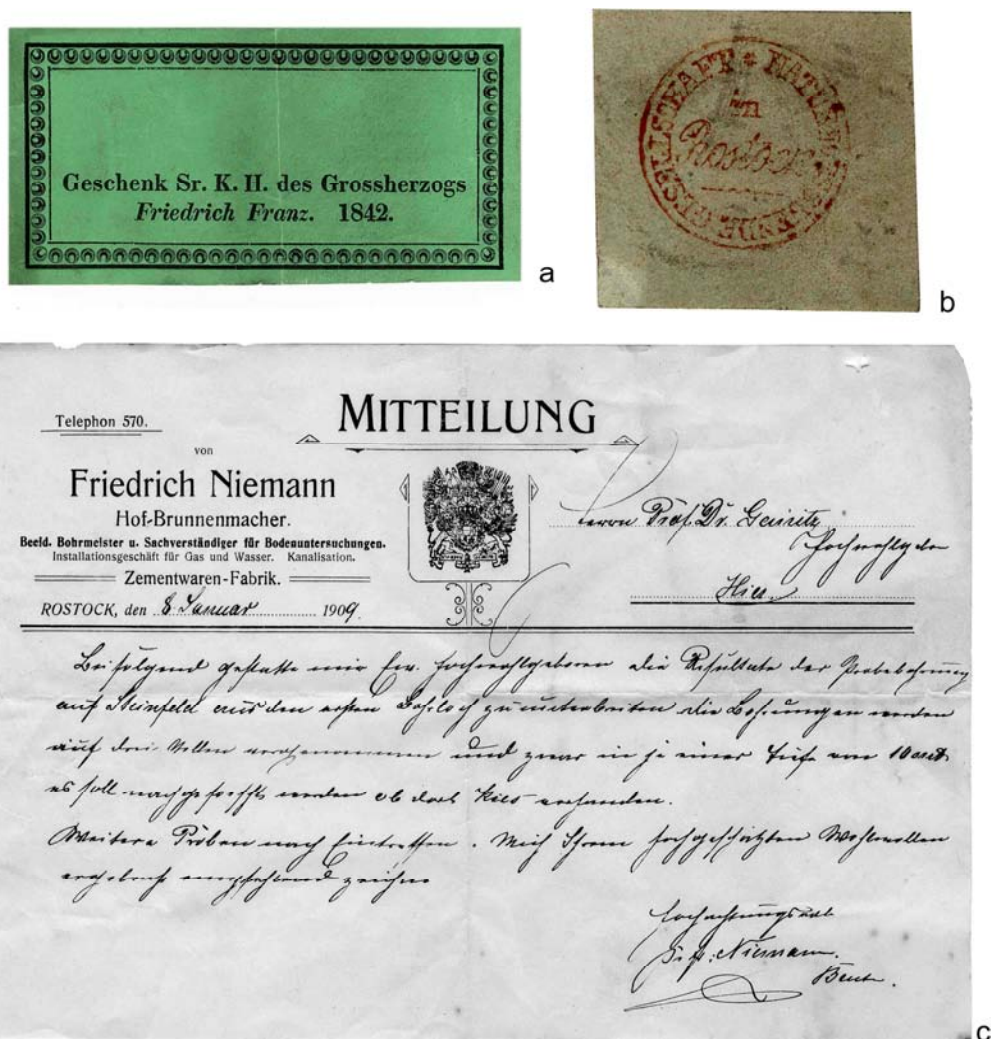 Geschenk Sr. K. H. des Grossherzogs
Friedrich Franz. 1842.
a
NATURFORSCHENDE GESELLSCHAFT *
in
Rostock
b
Telephon 570.
MITTEILUNG
von
Friedrich Niemann
Hof-Brunnenmacher.
Beeid. Bohrmeister u. Sachverständiger für Bodenuntersuchungen.
Installationsgeschäft für Gas und Wasser. Kanalisation.
Zementwaren-Fabrik.
ROSTOCK, den 8 Januar 1909.
Herrn Prof. Dr. Geinitz
Hochwohlgeboren
Hier
Beifolgend gestatte mir Ew. Hochwohlgeboren die Resultate der Probebohrung
auf Steinfeld aus den ersten Bohrloch zu unterbreiten die Bohrungen werden
auf drei Stellen vorgenommen und zwar in je einer Tiefe von 10
es soll nachgeforscht werden ob dort Kies vorhanden.
Weitere Proben nach Eintreffen. Mich Ihrem hochgeschätzten Wohlwollen
ergebenst empfehlend zeichne
Hochachtungsvoll
Niemann.
c